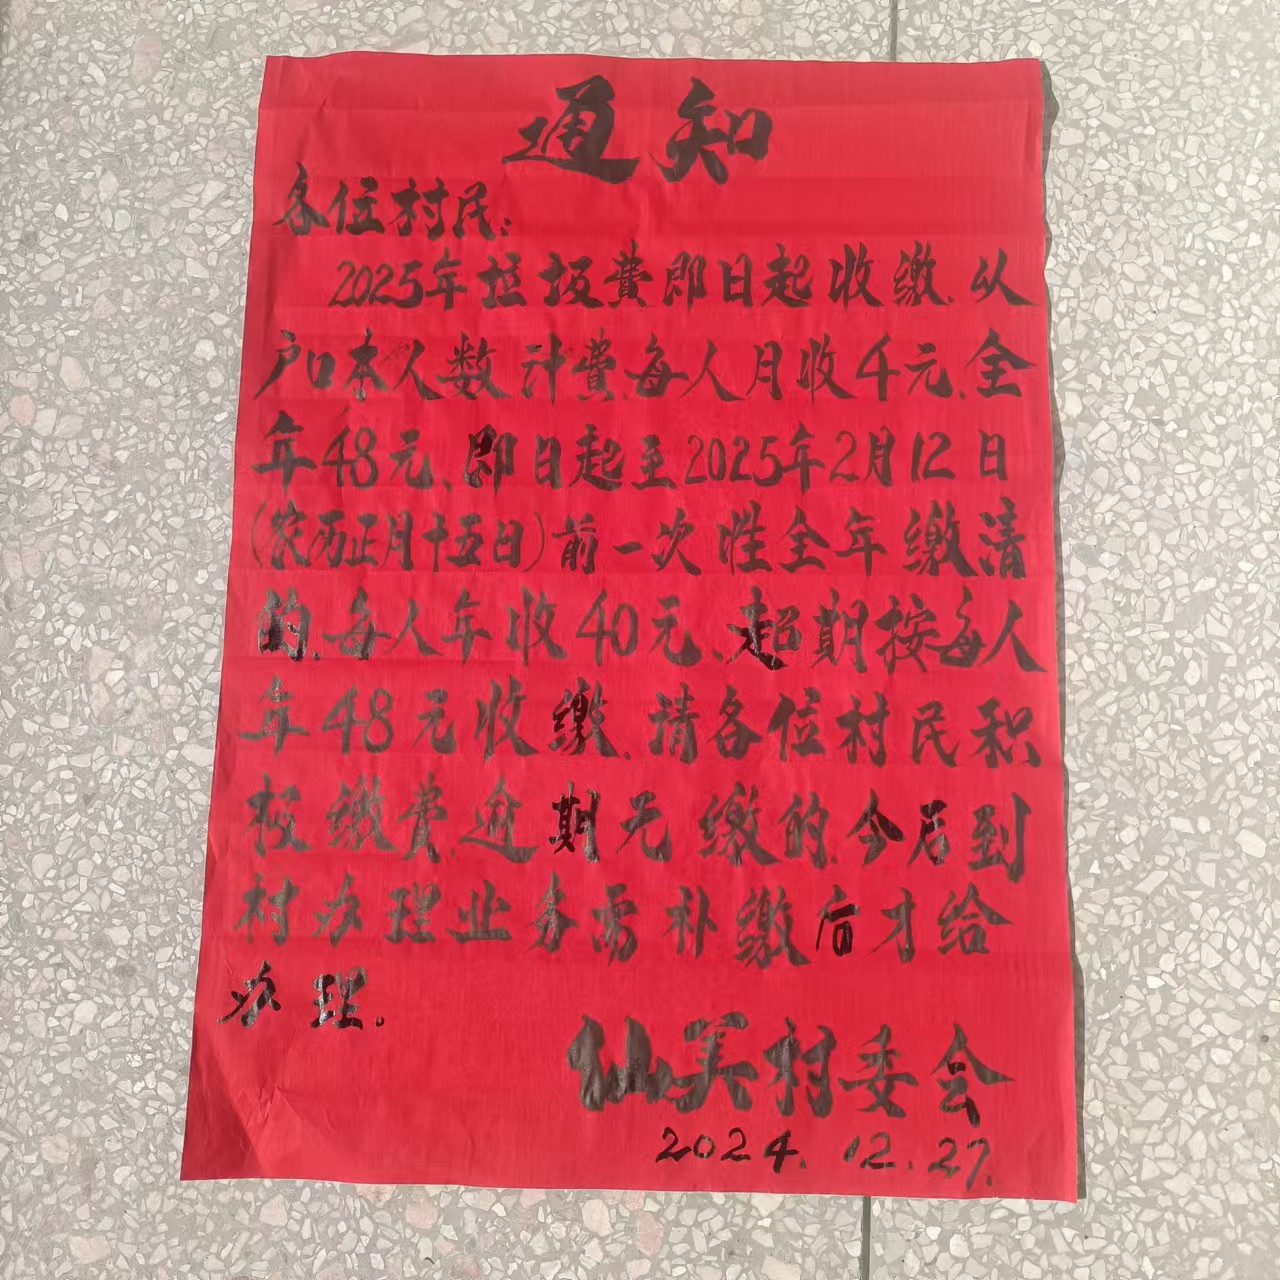 通知
各位村民:
2025年垃圾費即日起收缴.从
户口本人数计費.每人月收4元.全
年48元.即日起至2025年2月12日
(农历正月十五日)前一次性全年缴清
的.每人年收40元.超期按每人
年48元收缴.请各位村民积
极缴费.逾期无缴的.今后到
村办理业务需补缴后才给
办理.
仙美村委会
2024.12.27.